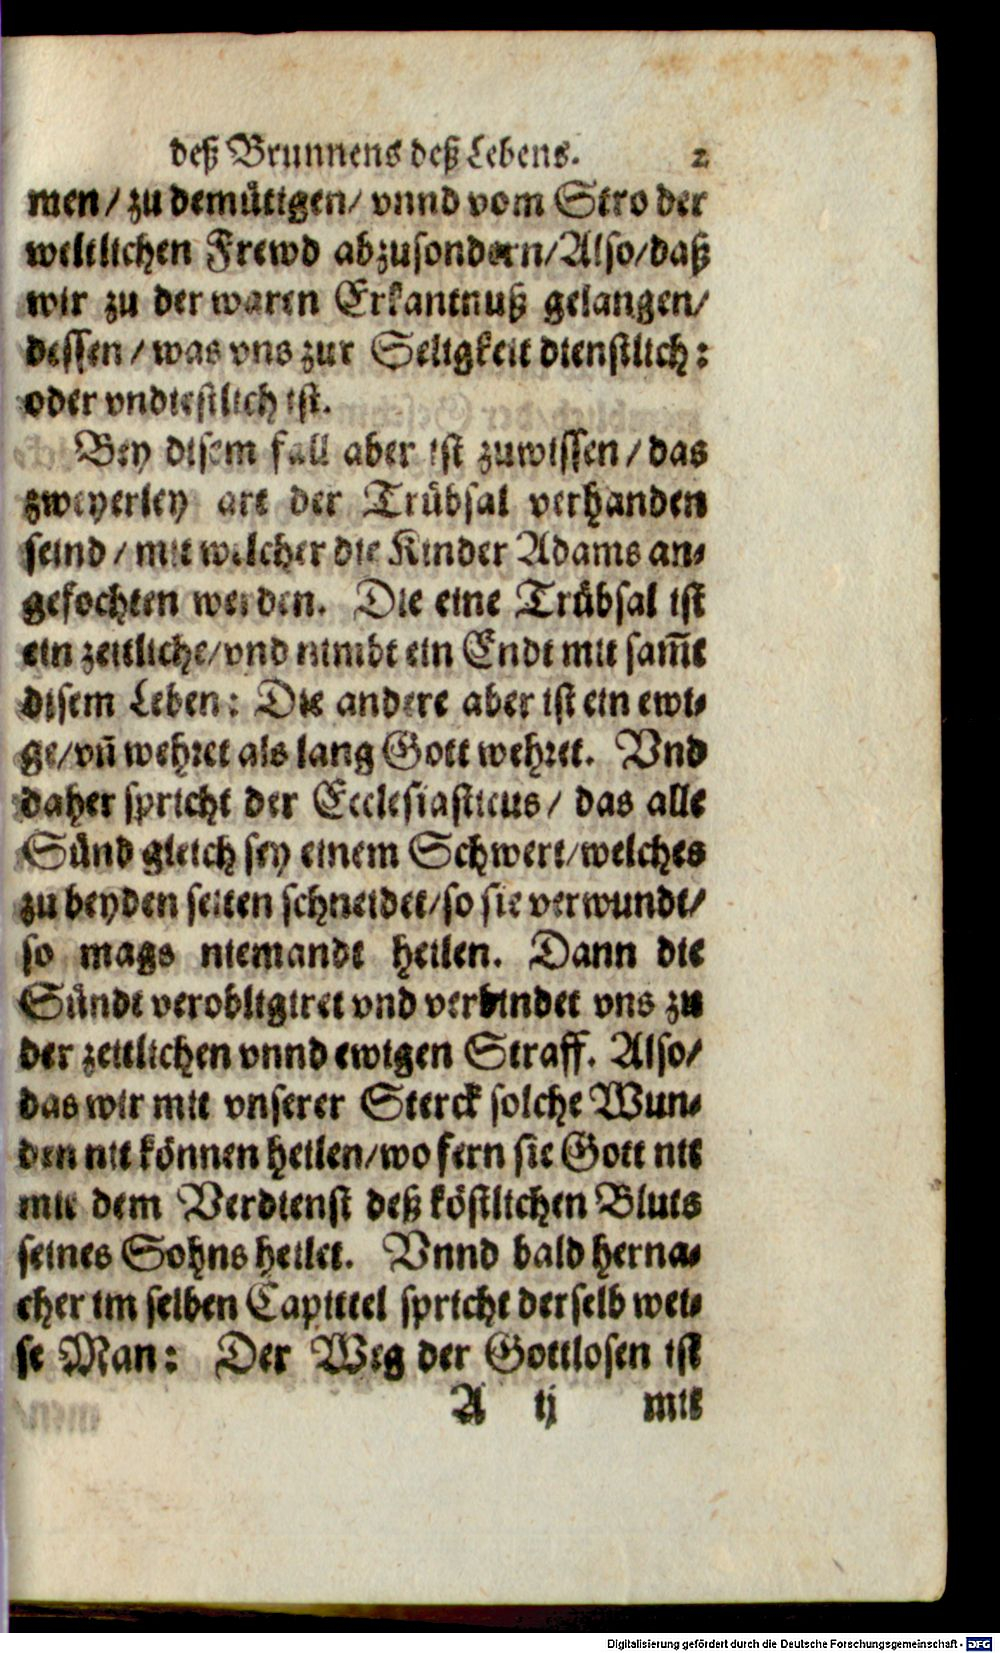 deß Brunnens deß Lebens. 2
men/ zu demütigen/ vnnd vom Stro der
weltlichen Frewd abzusondern/Also/daß
wir zu der waren Erkantnuß gelangen/
dessen/ was vns zur Seligkeit dienstlich:
oder vndiestlich ist.
Bey disem fall aber ist zuwissen/ das
zweyerley art der Trübsal verhanden
seind/ mit welcher die Kinder Adams an-
gefochten werden. Die eine Trübsal ist
ein zeitliche/vnd nimbt ein Endt mit sam̃t
disem Leben: Die andere aber ist ein ewi-
ge/vñ wehret als lang Gott wehret. Vnd
daher spricht der Ecclesiasticus/ das alle
Sünd gleich sey einem Schwert/welches
zu beyden seiten schneidet/so sie verwundt/
so mags niemandt heilen. Dann die
Sündt verobligiret vnd verbindet vns zu
der zeitlichen vnnd ewigen Straff. Also/
das wir mit vnserer Sterck solche Wun-
den nit können heilen/wo fern sie Gott nit
mit dem Verdienst deß köstlichen Bluts
seines Sohns heilet. Vnnd bald herna-
cher im selben Capittel spricht derselb wei-
se Man: Der Weg der Gottlosen ist
A ij mit
Digitalisierung gefördert durch die Deutsche Forschungsgemeinschaft - DFG